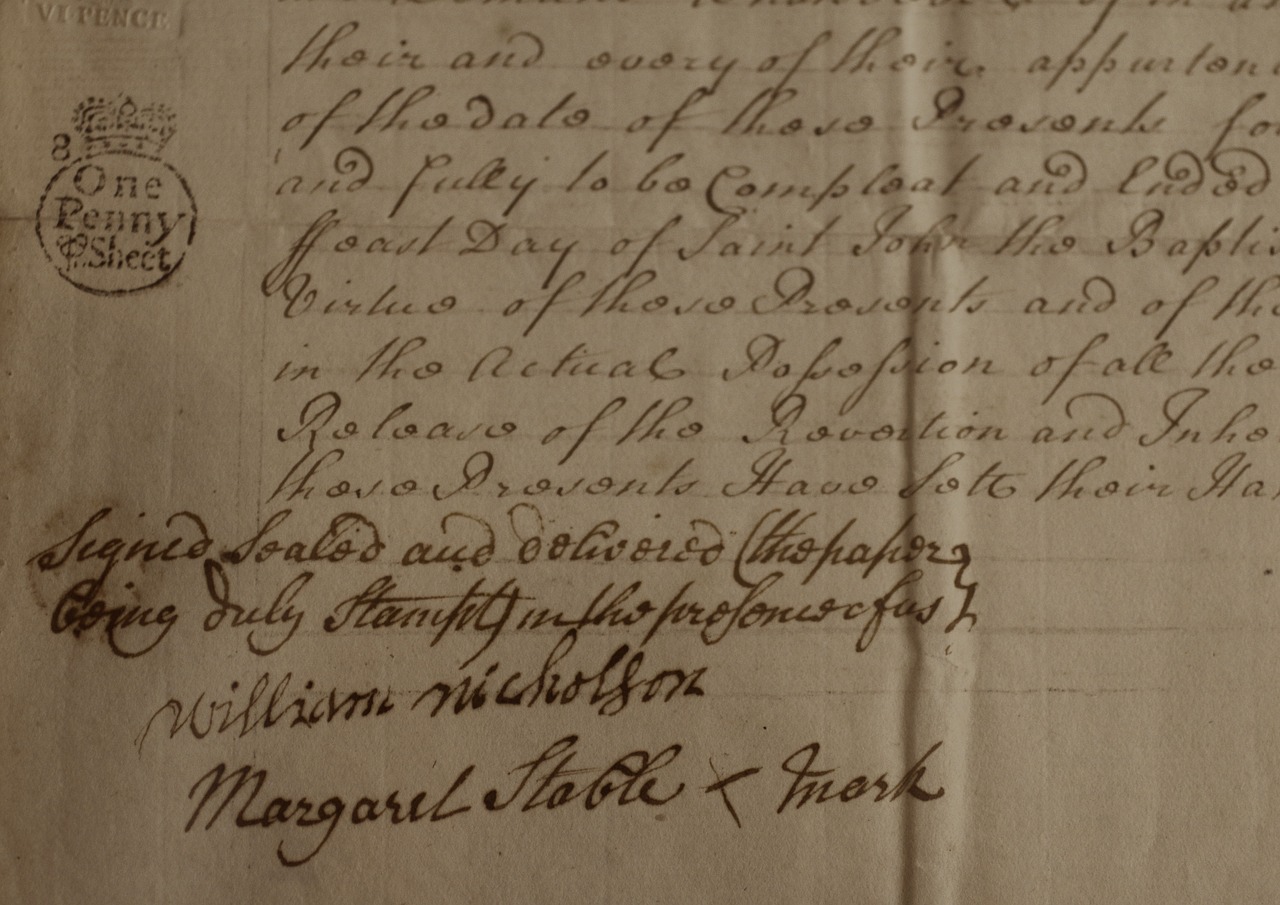 VI PENCE
8
One
Penny
P Sheet
their and every of their appurten
of the date of these Presents fo
and fully to be Compleat and Ended
ffeast Day of Saint John the Baptis
Virtue of these Presents and of the
in the Actual Possession of all the
Release of the Revertion and Inhe
these Presents Have Sett their Han
Signed Sealed and delivered (the paper
being duly Stampt) in the presence of us
William Nicholson
Margaret Stable X mark